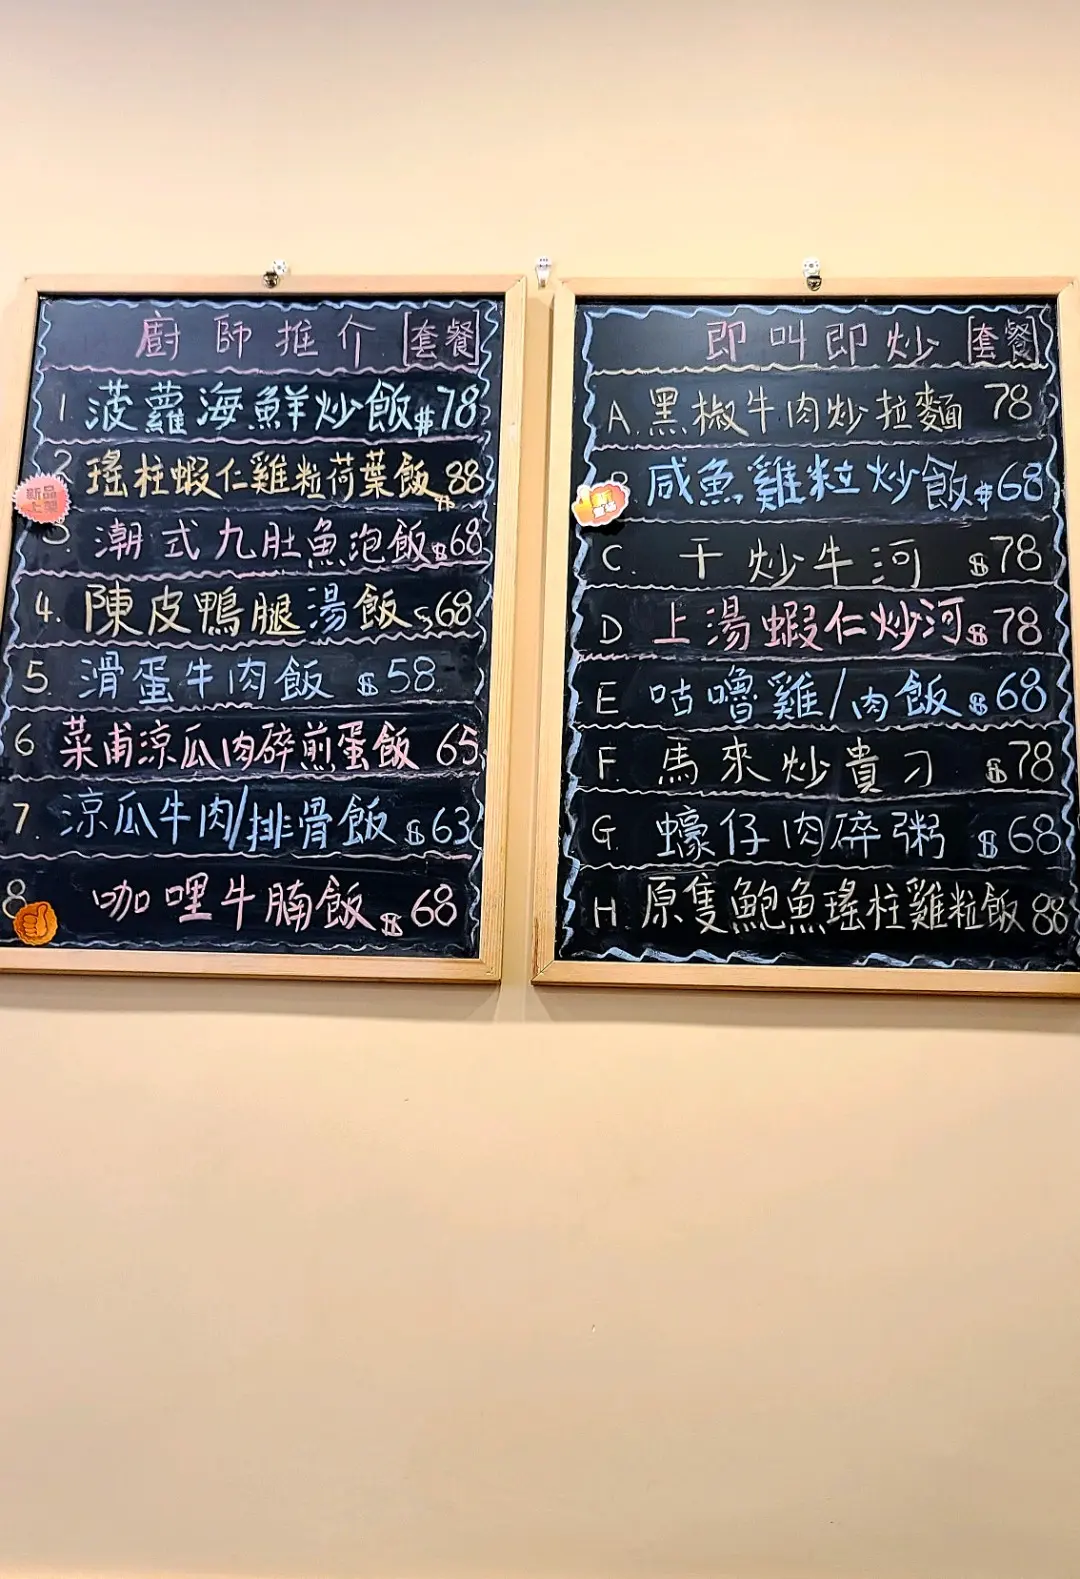 廚師推介[套餐]
1 菠蘿海鮮炒飯$78
2 瑤柱蝦仁雞粒荷葉飯$88
新品
上架
3. 潮式九肚魚泡飯$68
4. 陳皮鴨腿湯飯$68
5. 滑蛋牛肉飯 $58
6 菜甫涼瓜肉碎煎蛋飯 65
7. 涼瓜牛肉/排骨飯 $63
8 咖哩牛腩飯 $68
即叫即炒[套餐]
A. 黑椒牛肉炒拉麵 78
B 咸魚雞粒炒飯$68
C. 干炒牛河 $78
D 上湯蝦仁炒河$78
E 咕嚕雞/肉飯$68
F. 馬來炒貴刁 $78
G. 蠔仔肉碎粥 $68
H 原隻鮑魚瑤柱雞粒飯 88